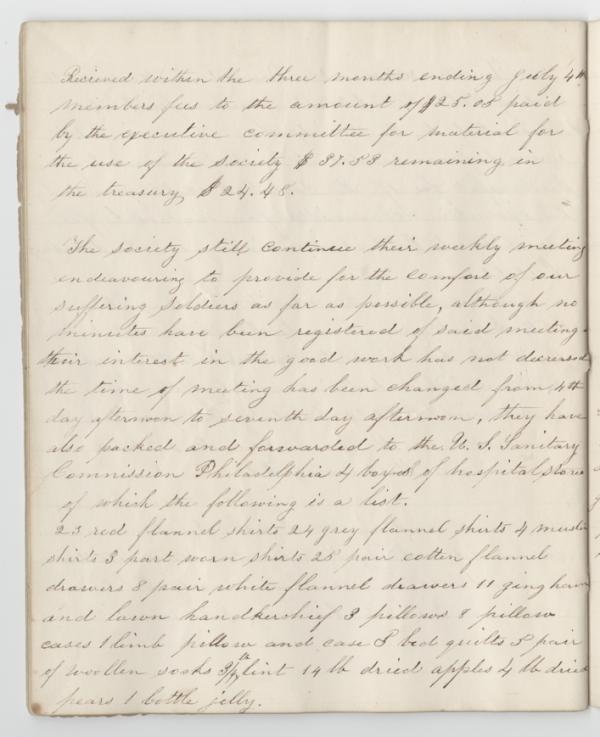 Recieved within the three months ending July 4th
members fees to the amount of $25.05 paid
by the executive committee for material for
the use of the Society $37.53 remaining in
the treasury $24.48.
The society still continue their weekly meeting
endeavouring to provide for the comfort of our
suffering soldiers as far as possible, although no
minutes have been registered of said meeting
their interest in the good work has not decreased
the time of meeting has been changed from 4th
day afternoon to seventh day afternoon, they have
also packed and forwarded to the U. S. Sanitary
Commission Philadelphia 4 boxes of hospital stores
of which the following is a list.
23 red flannel shirts 24 grey flannel shirts 4 muslin
shirts 3 part worn shirts 28 pair cotten flannel
drawers 8 pair white flannel drawers 11 gingham
and lawn handkerchief 3 pillows 8 pillow
cases 1 limb pillow and case 8 bed quilts 5 pair
of woollen socks lint 14 lb dried apples 4 lb dried
pears 1 bottle jelly.